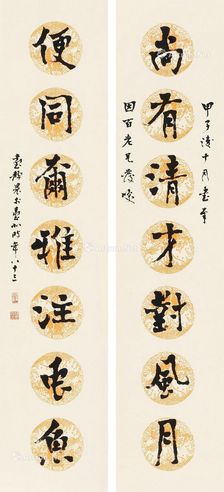 甲子後十月書奉
尚有清才對風月
因百老兄發噱
便同爾雅注虫魚
靜農於臺北時年八十三